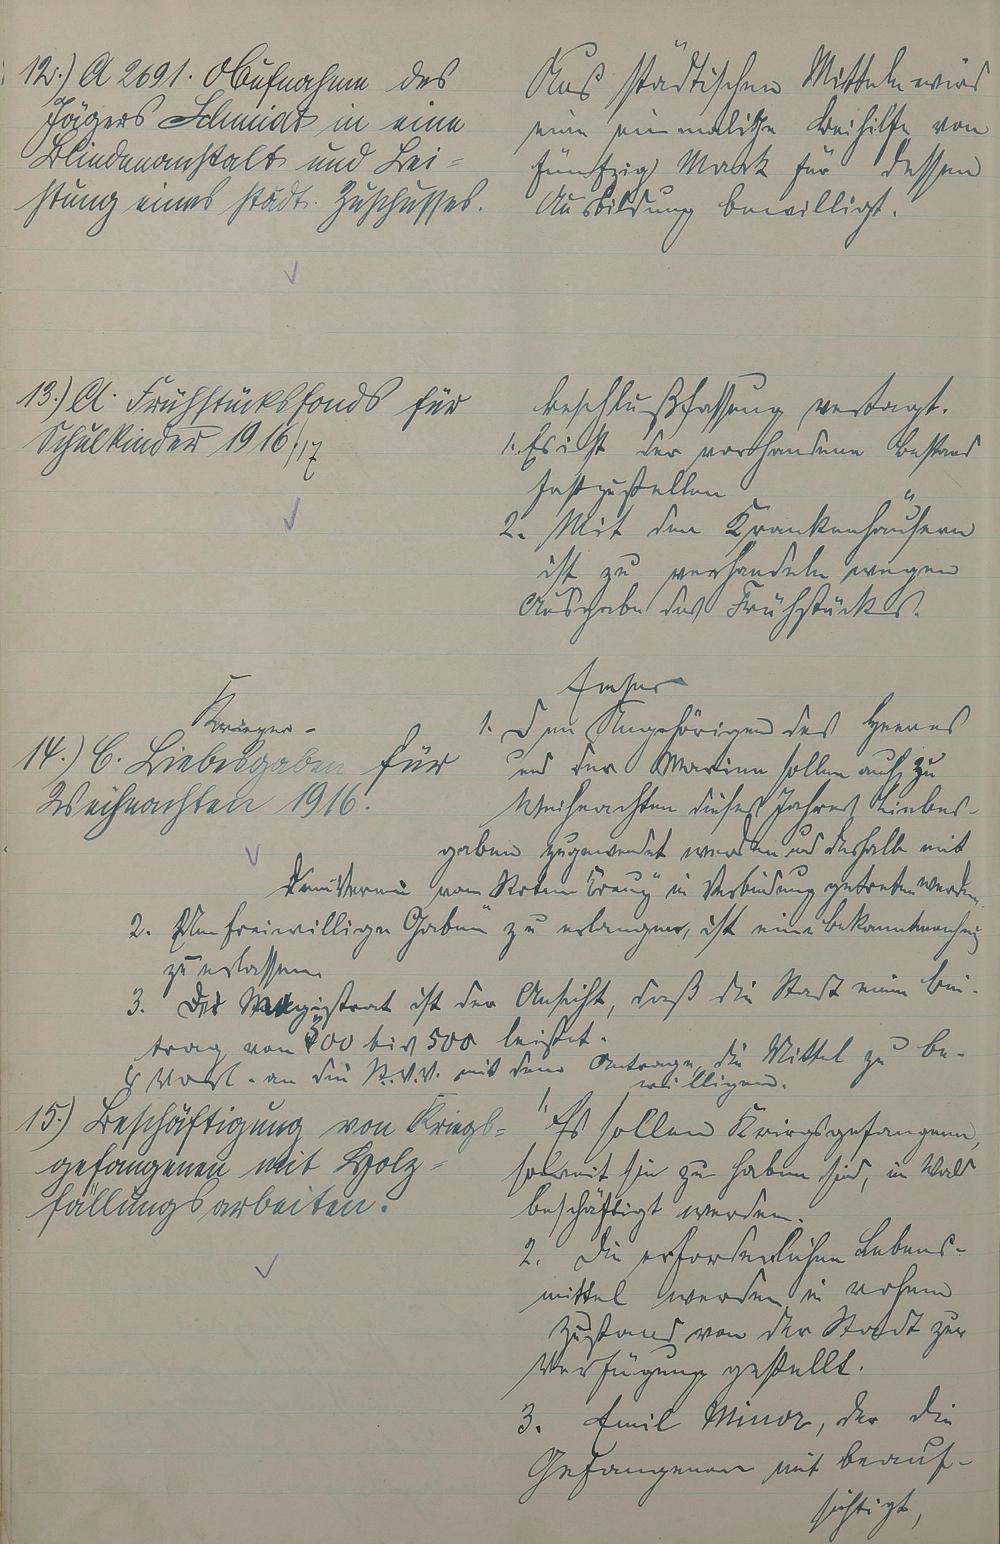 12.) A 2691. Aufnahme des
Jägers Schmidt in eine
Blindenanstalt und Lei-
stung eines städt. Zuschusses.
Aus städtischen Mitteln wird
eine einmalige Beihilfe von
fünfzig Mark für dessen
Ausbildung bewilligt.
13.) A. Frühstücksfonds für
Schulkinder 1916/17
Beschlußfassung vertagt.
1. Es ist der vorhandene Bestand
festzustellen
2. Mit den Krankenhäusern
ist zu verhandeln wegen
Ausgabe des Frühstücks.
Krieger-
14.) C. Liebesgaben für
Weihnachten 1916.
1. Den Angehörigen des Heeres
und der Marine sollen auch zu
Weihnachten dieses Jahres Liebes-
gaben zugewendet werden und deshalb mit
dem Verein vom Roten Kreuz in Verbindung getreten werden.
2. Um freiwillige Gaben zu erlangen, ist eine Bekanntmachung
zu erlassen.
3. Der Magistrat ist der Ansicht, daß die Stadt einen Bei-
trag von 300 bis 500 leistet.
Vorl. an die St.V.V. mit dem Antrage, die Mittel zu be-
willigen.
15.) Beschäftigung von Kriegs-
gefangenen mit Holz-
fällungsarbeiten.
1. Es sollen Kriegsgefangene,
soweit sie zu haben sind, im Wald
beschäftigt werden.
2. Die erforderlichen Lebens-
mittel werden in rohem
Zustand von der Stadt zur
Verfügung gestellt.
3. Emil Minor, der die
Gefangenen mit beauf-
sichtigt,